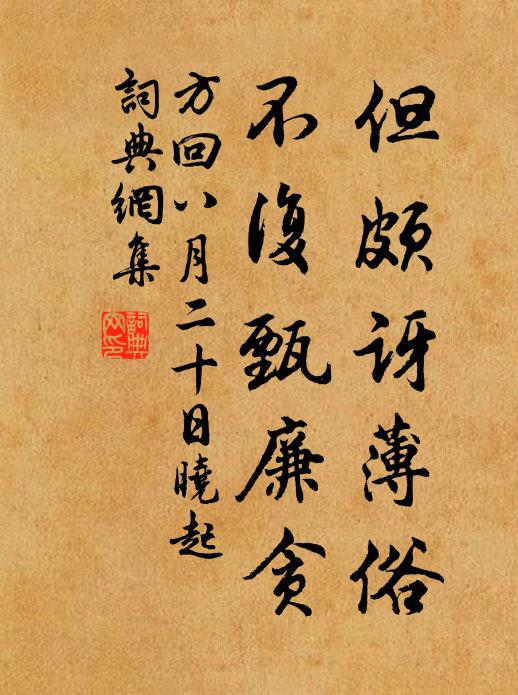 但頗訝薄俗
不復甄廉貪
方回八月二十日曉起
詞典網集
詞典网印